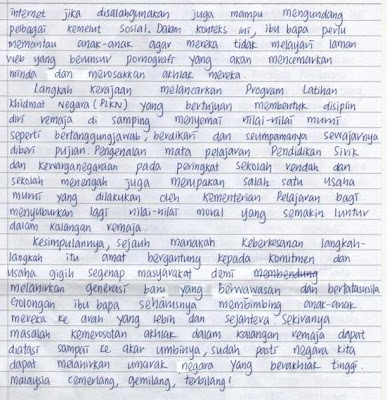 internet jika disalahgunakan juga mampu mengundang
pelbagai kemelut sosial. Dalam konteks ini, ibu bapa perlu
memantau anak-anak agar mereka tidak melayari laman
web yang berunsur pornografi yang akan mencemarkan
minda dan merosakkan akhlak mereka.
Langkah kerajaan melancarkan Program Latihan
Khidmat Negara (PLKN) yang bertujuan membentuk disiplin
diri remaja di samping menyemai nilai-nilai murni
seperti bertanggungjawab, berdikari dan seumpamanya sewajarnya
diberi pujian. Pengenalan mata pelajaran Pendidikan Sivik
dan kewarganegaraan pada peringkat sekolah rendah dan
sekolah menengah juga merupakan salah satu usaha
murni yang dilakukan oleh Kementerian Pelajaran bagi
menyuburkan lagi nilai-nilai moral yang semakin luntur
dalam kalangan remaja.
Kesimpulannya, sejauh manakah keberkesanan langkah-
langkah itu amat bergantung kepada komitmen dan
usaha gigih segenap masyarakat demi membendung
melahirkan generasi baru yang berwawasan dan bertatasusila
Golongan ibu bapa seharusnya membimbing anak-anak
mereka ke arah yang lebih dan sejahtera Sekiranya
masalah kemerosotan akhlak dalam kalangan remaja dapat
diatasi sampai ke akar umbinya, sudah pasti negara kita
dapat melahirkan umarak negara yang berakhlak tinggi.
malaysia cemerlang, gemilang, terbilang!